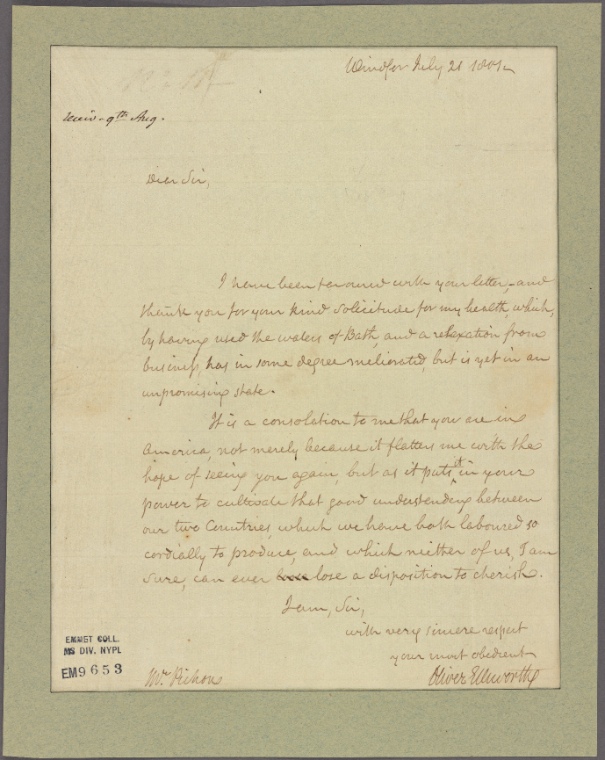 Windsor July 21 1801
Receiv. 9th Aug.
Dear Sir,
I have been favoured with your letter, and
thank you for your kind solicitude for my health, which,
by having used the waters of Bath, and a relaxation from
business, has in some degree meliorated, but is yet in an
unpromising state.
It is a consolation to me that you are in
America, not merely because it flatters me with the
hope of seeing you again, but as it puts it in your
power to cultivate that good understanding between
our two Countries, which we have both laboured so
cordially to produce, and which neither of us, I am
sure, can ever lose a disposition to cherish.
I am, Sir,
with very sincere respect
your most obedient
Oliver Ellsworth
Mr. Pichon
EMMET COLL.
MS DIV. NYPL
EM9653